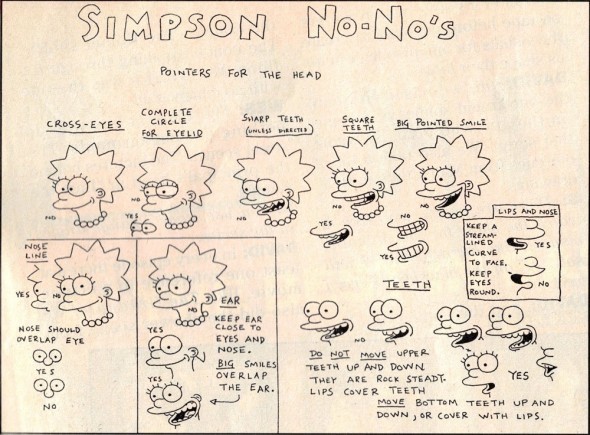 SIMPSON NO-NO'S
POINTERS FOR THE HEAD
CROSS-EYES
NO
COMPLETE
CIRCLE
FOR EYELID
NO
YES
SHARP TEETH
(UNLESS DIRECTED)
NO
SQUARE
TEETH
NO
YES
NO
YES
BIG POINTED SMILE
NO
LIPS AND NOSE
KEEP A
STREAM-
LINED
CURVE
TO FACE.
KEEP
EYES
ROUND.
YES
NO
NOSE
LINE
YES
NO
NOSE SHOULD
OVERLAP EYE
YES
NO
NO
EAR
KEEP EAR
CLOSE TO
EYES AND
NOSE.
YES
BIG SMILES
OVERLAP
THE EAR.
YES
TEETH
NO
DO NOT MOVE UPPER
TEETH UP AND DOWN.
THEY ARE ROCK STEADY.
LIPS COVER TEETH
YES
MOVE BOTTOM TEETH UP AND
DOWN, OR COVER WITH LIPS.